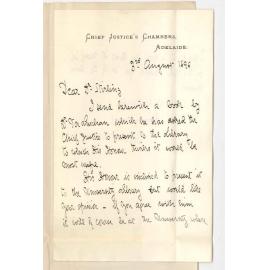 CHIEF JUSTICE'S CHAMBERS,
ADELAIDE.
3rd August 1896
Dear Dr Stirling
I send herewith a book by
Mr which he has asked the
Chief Justice to present to the library
to which His Honour thinks it would be
most
His Honour is inclined to present it
to the University library but would like
your opinion - If you agree with him
it will of course be at the University where